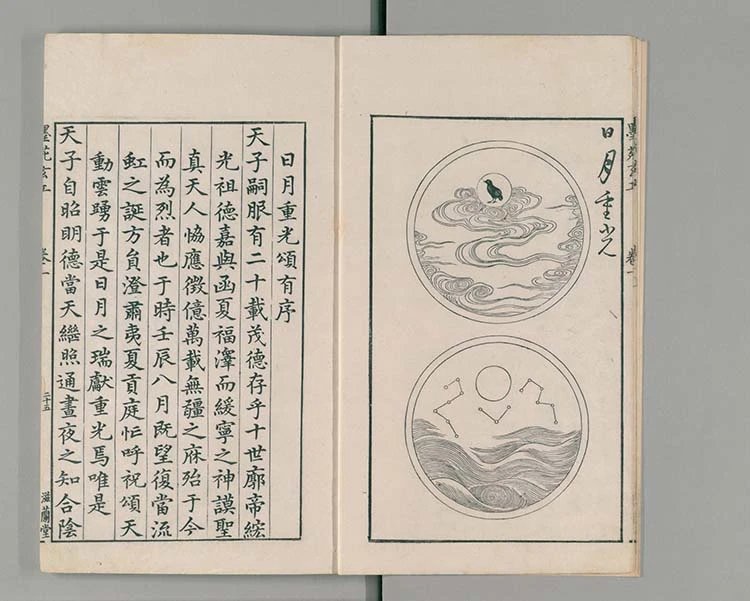 日月重光
卷一
日月重光頌有序
天子嗣服有二十載茂德存乎十世廓帝綋
光祖德嘉與函夏福澤而綏寧之神謨聖
真天人恊應徵億萬載無疆之庥殆于今
而為烈者也于時壬辰八月既望復當流
虹之誕方貟澄肅夷夏貢庭忭呼祝頌天
動雲踴于是日月之瑞獻重光焉唯是
天子自昭明德當天繼照通晝夜之知合陰
卷一
二十五
滋蘭堂